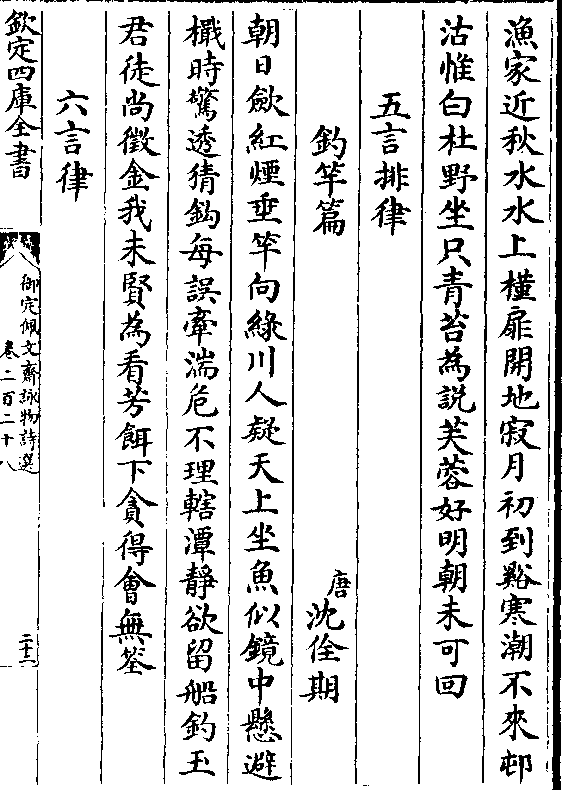 漁家近秋水水上槿扉開地寂月初到谿寒潮不來邨
沽惟白杜野坐只青苔為說芙蓉好明朝未可回
五言排律
釣竿篇
唐沈佺期
朝日歛紅煙垂竿向綠川人疑天上坐魚似鏡中懸避
檝時驚透猜鈎每誤牽湍危不理轄潭靜欲留船釣玉
君徒尚徵金我未賢為看芳餌下貪得會無筌
六言律
欽定四庫全書
御定佩文齋詠物詩選
卷二百二十八
二十二